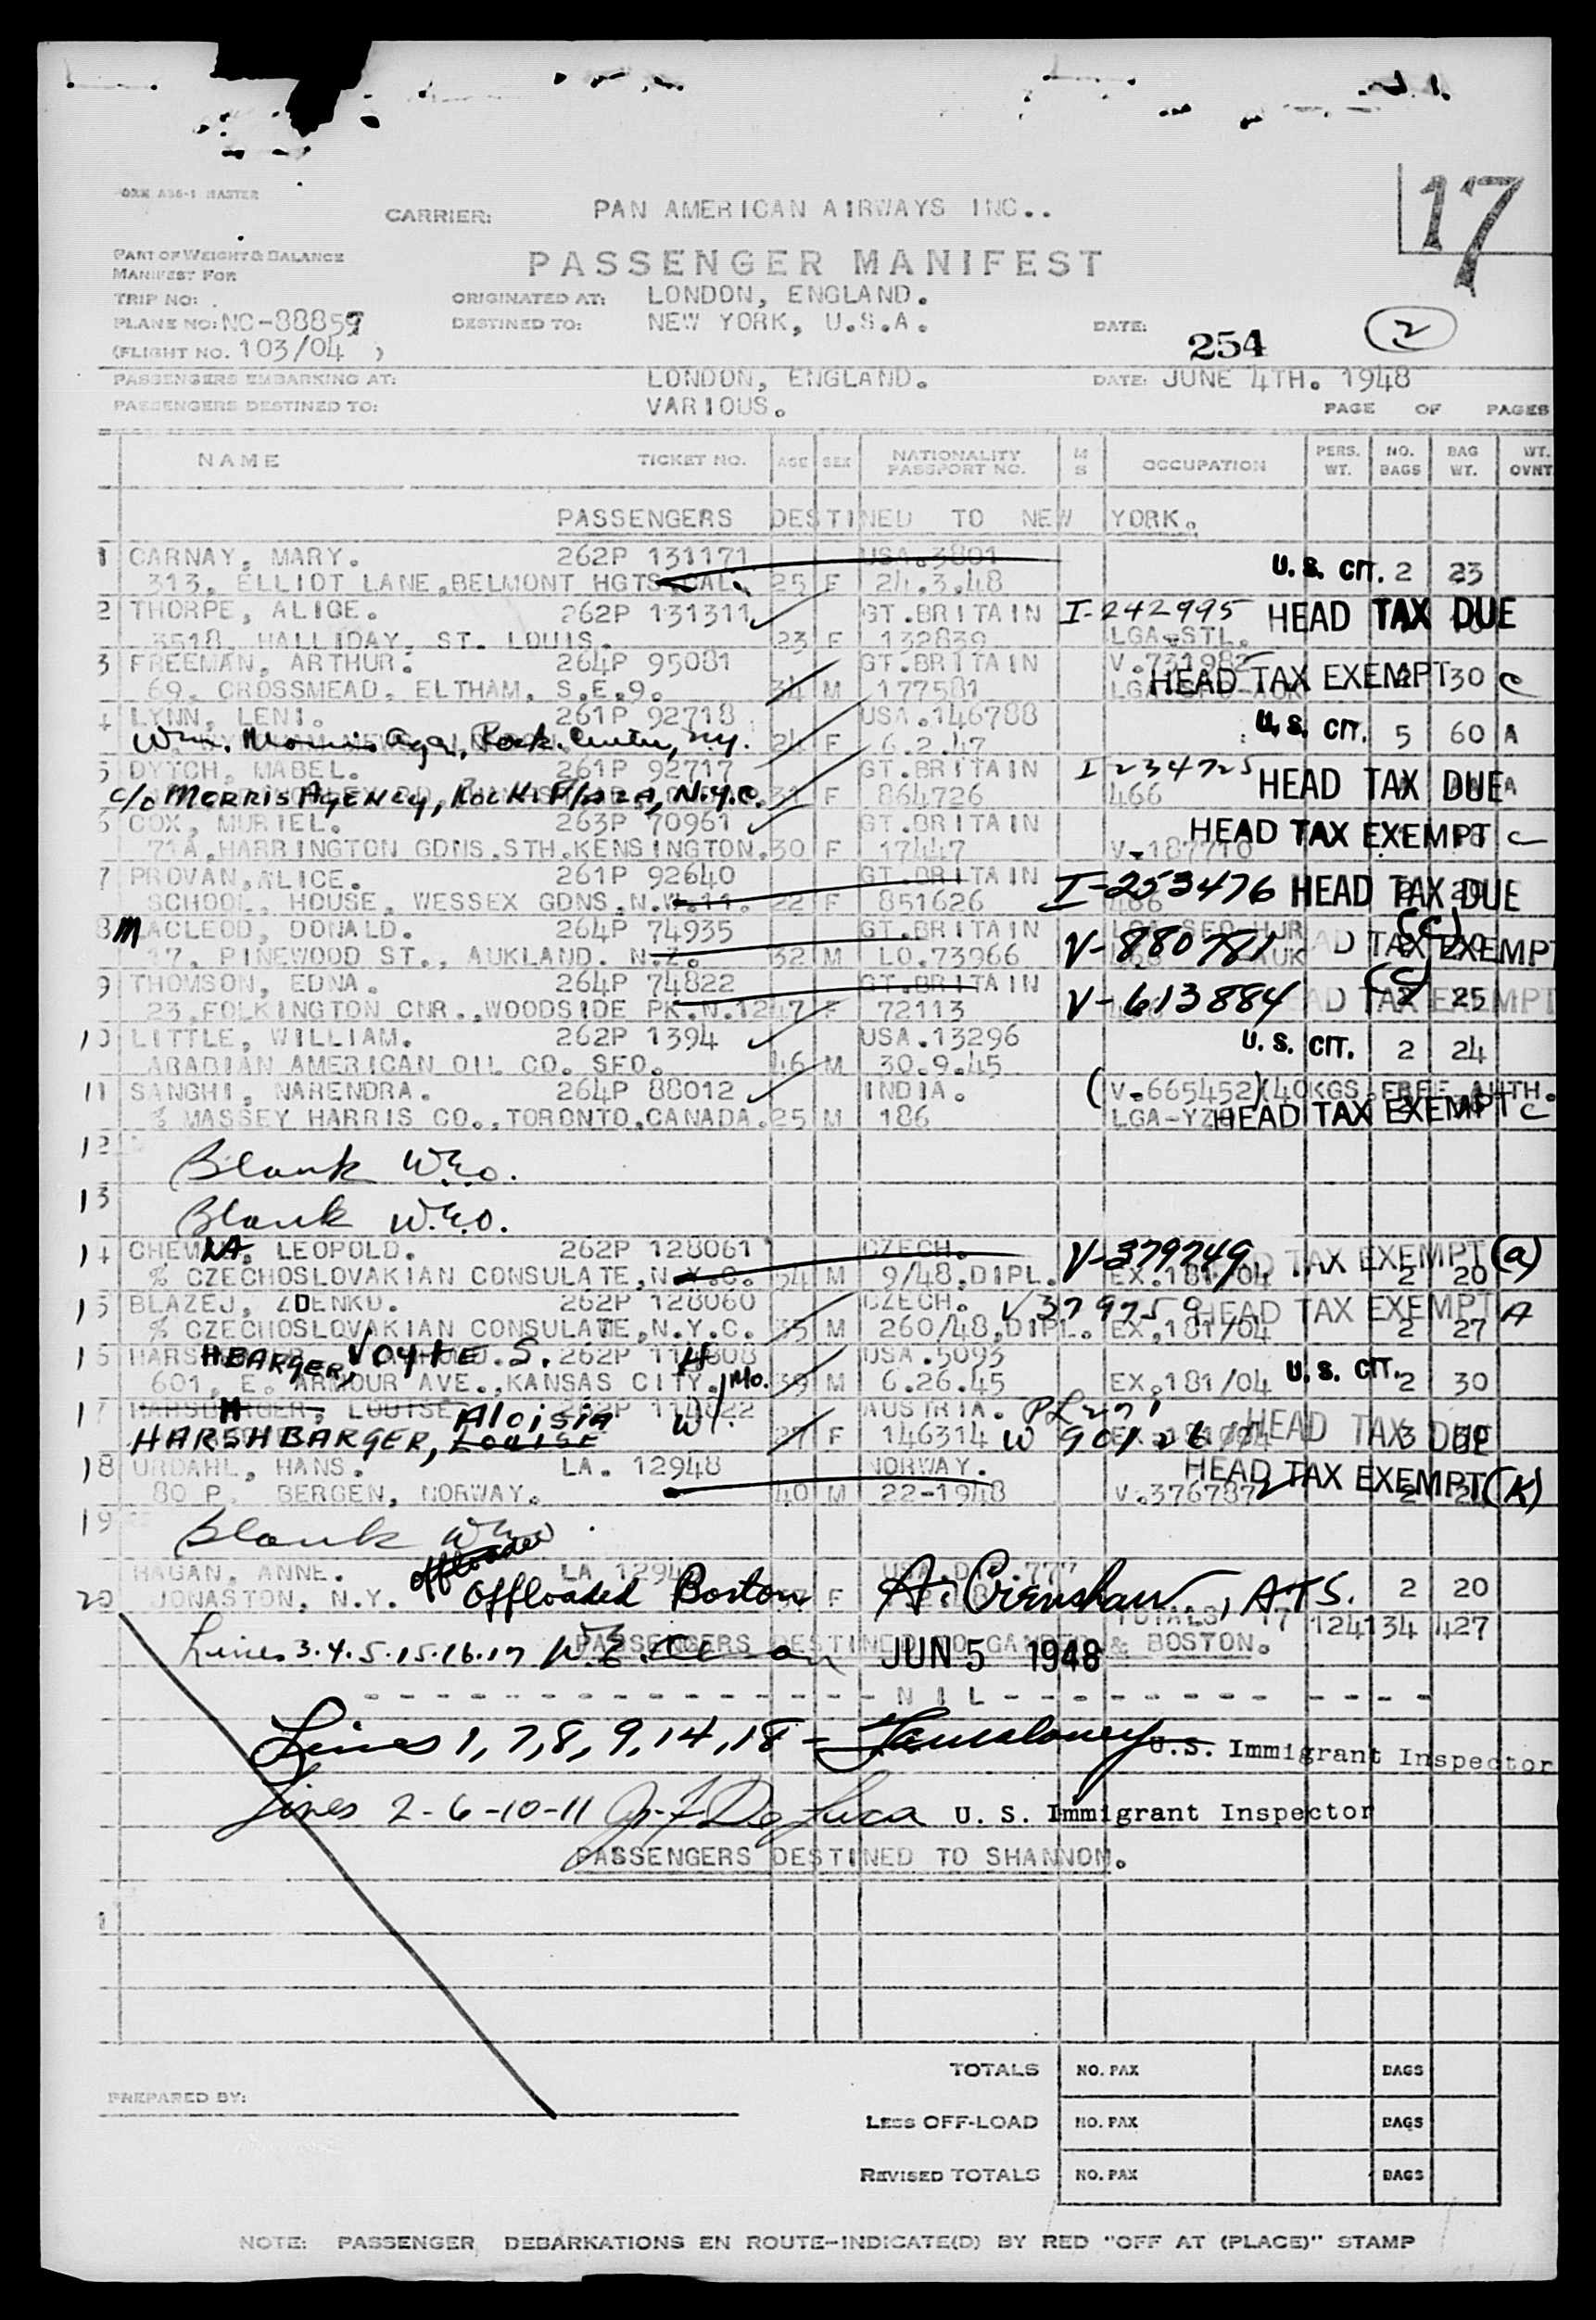 FORM A36-1 MASTER
17
CARRIER: PAN AMERICAN AIRWAYS INC..
PART OF WEIGHT & BALANCE
MANIFEST FOR
PASSENGER MANIFEST
TRIP NO: ORIGINATED AT: LONDON, ENGLAND.
PLANE NO: NC-88859 DESTINED TO: NEW YORK, U.S.A. DATE: 254 2
(FLIGHT NO. 103/04 )
PASSENGERS EMBARKING AT: LONDON, ENGLAND. DATE: JUNE 4TH. 1948
PASSENGERS DESTINED TO: VARIOUS. PAGE OF PAGES
NAME TICKET NO. AGE SEX NATIONALITY PASSPORT NO. M S OCCUPATION PERS. WT. NO. BAGS BAG WT. WT. OVNT
PASSENGERS DESTINED TO NEW YORK.
1 CARNAY, MARY. 262P 131171 USA.3801 U.S. CIT. 2 23
313, ELLIOT LANE,BELMONT HGTS.CAL. 25 F 24.3.48
2 THORPE, ALICE. 262P 131311 GT.BRITAIN I-242995 HEAD TAX DUE
3518, HALLIDAY, ST. LOUIS. 23 F 132839 LGA-STL.
3 FREEMAN, ARTHUR. 264P 95081 GT.BRITAIN V.731982
69, CROSSMEAD, ELTHAM, S.E.9. 34 M 177581 HEAD TAX EXEMPT 30 C
4 LYNN, LENI. 261P 92718 USA.146788 U.S. CIT. 5 60 A
Wm. Morris Agcy, Rock. Center, N.Y. 24 F 6.2.47
5 DYTCH, MABEL. 261P 92717 GT.BRITAIN I 234725 HEAD TAX DUE A
c/o MORRIS AGENCY, ROCK. PLAZA, N.Y.C. 31 F 864726 466
6 COX, MURIEL. 263P 70961 GT.BRITAIN HEAD TAX EXEMPT C
71A,HARRINGTON GDNS.STH.KENSINGTON. 30 F 17447 V.187710
7 PROVAN,ALICE. 261P 92640 GT.BRITAIN I-253476 HEAD TAX DUE
SCHOOL, HOUSE, WESSEX GDNS,N.W.11. 22 F 851626 466
8 MACLEOD, DONALD. 264P 74935 GT.BRITAIN V-880781 HEAD TAX EXEMPT (C)
17, PINEWOOD ST., AUKLAND. N.Z. 32 M LO.73966
9 THOMSON, EDNA. 264P 74822 GT.BRITAIN V-613884 HEAD TAX EXEMPT (C) 2 25
23,FOLKINGTON CNR.,WOODSIDE PK.N.12 47 F 72113
10 LITTLE, WILLIAM. 262P 1394 USA.13296 U.S. CIT. 2 24
ARABIAN AMERICAN OIL CO. SFO. 46 M 30.9.45
11 SANGHI, NARENDRA. 264P 88012 INDIA. (V.665452)(40KGS.FREE AUTH.
% MASSEY HARRIS CO.,TORONTO,CANADA. 25 M 186 HEAD TAX EXEMPT C
12 Blank W.E.O.
13 Blank W.E.O.
14 CHEMLA, LEOPOLD. 262P 128061 CZECH. V-379749 HEAD TAX EXEMPT (a)
% CZECHOSLOVAKIAN CONSULATE,N.Y.C. 54 M 9/48,DIPL. EX.181/04 2 20
15 BLAZEJ, ZDENKO. 262P 128060 CZECH. V 379759 HEAD TAX EXEMPT A
% CZECHOSLOVAKIAN CONSULATE,N.Y.C. 35 M 260/48,DIPL. EX.181/04 2 27
16 HARSHBARGER, VOYLE S. 262P H USA.5093 U.S. CIT.
601, E. ARMOUR AVE.,KANSAS CITY. Mo. 39 M 6.26.45 EX.181/04 2 30
17 HARSBARGER, LOUISE 262P AUSTRIA.
HARSHBARGER, Louise Aloisia W 27 F 146314 HEAD TAX DUE
18 URDAHL, HANS. LA. 12948 NORWAY. HEAD TAX EXEMPT (K)
80 P. BERGEN, NORWAY. 40 M 22-1948 V.376787
19 Blank
HAGAN, ANNE. offloaded
20 JONASTON, N.Y. Offloaded Boston F A. Crenshaw, ATS. 2 20
TOTALS. 17 124134 427
Lines 3.4.5.15.16.17 PASSENGERS DESTINED TO GANDER & BOSTON. JUN 5 1948
- - - NIL - - -
Lines 1, 7, 8, 9, 14, 18 - U.S. Immigrant Inspector
Lines 2-6-10-11 De Luca U. S. Immigrant Inspector
PASSENGERS DESTINED TO SHANNON.
1
TOTALS NO. PAX BAGS
PREPARED BY:
LESS OFF-LOAD NO. PAX BAGS
REVISED TOTALS NO. PAX BAGS
NOTE: PASSENGER DEBARKATIONS EN ROUTE-INDICATE(D) BY RED "OFF AT (PLACE)" STAMP